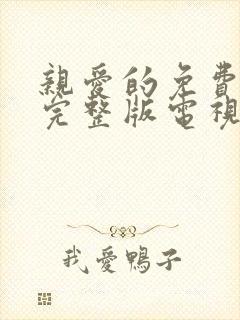 親愛的免費
完整版電視
我愛鴨子